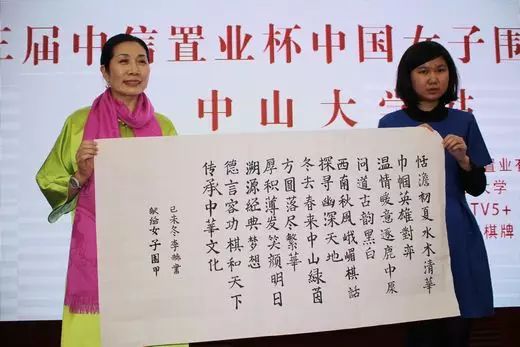 三届中信置业杯中国女子围
中山大学站
置业
大学
TV5+
棋牌
恬澹初夏水木清華
巾幗英雄對弈
温情暖意逐鹿中原
问道古韵黑白
西南秋風峨嵋棋話
探寻幽深天地
冬去春来中山緑茵
方圆落尽繁華
厚积薄发笑颜明日
溯源经典梦想
德言容功棋和天下
传承中華文化
献给女子围甲